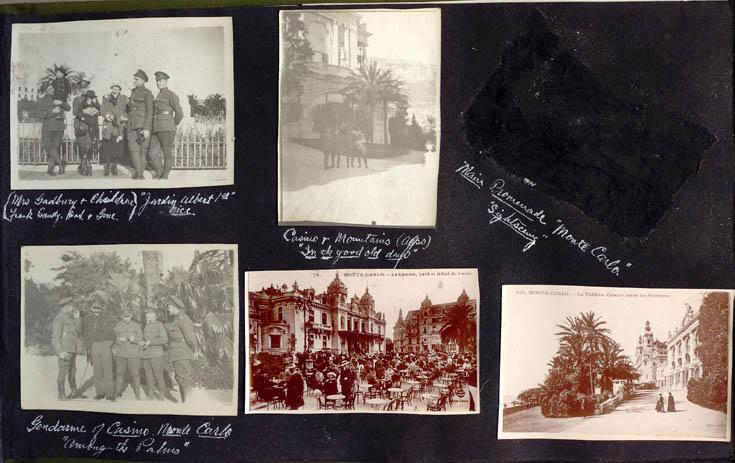 (Mrs Gadbury & Children) "Jardin Albert 1er"
Frank Gandy. Bud & Gene. Nice.
Casino & Mountains (Alps)
"In ye good old days"
Main Promenade "Monte Carlo."
"Sightseeing"
Gendarme of Casino Monte Carlo
"Among the Palms"
MONTE-CARLO. - Le Casino, Café et Hôtel de Paris
MONTE-CARLO. - Le Théâtre, Casino entre les Palmiers